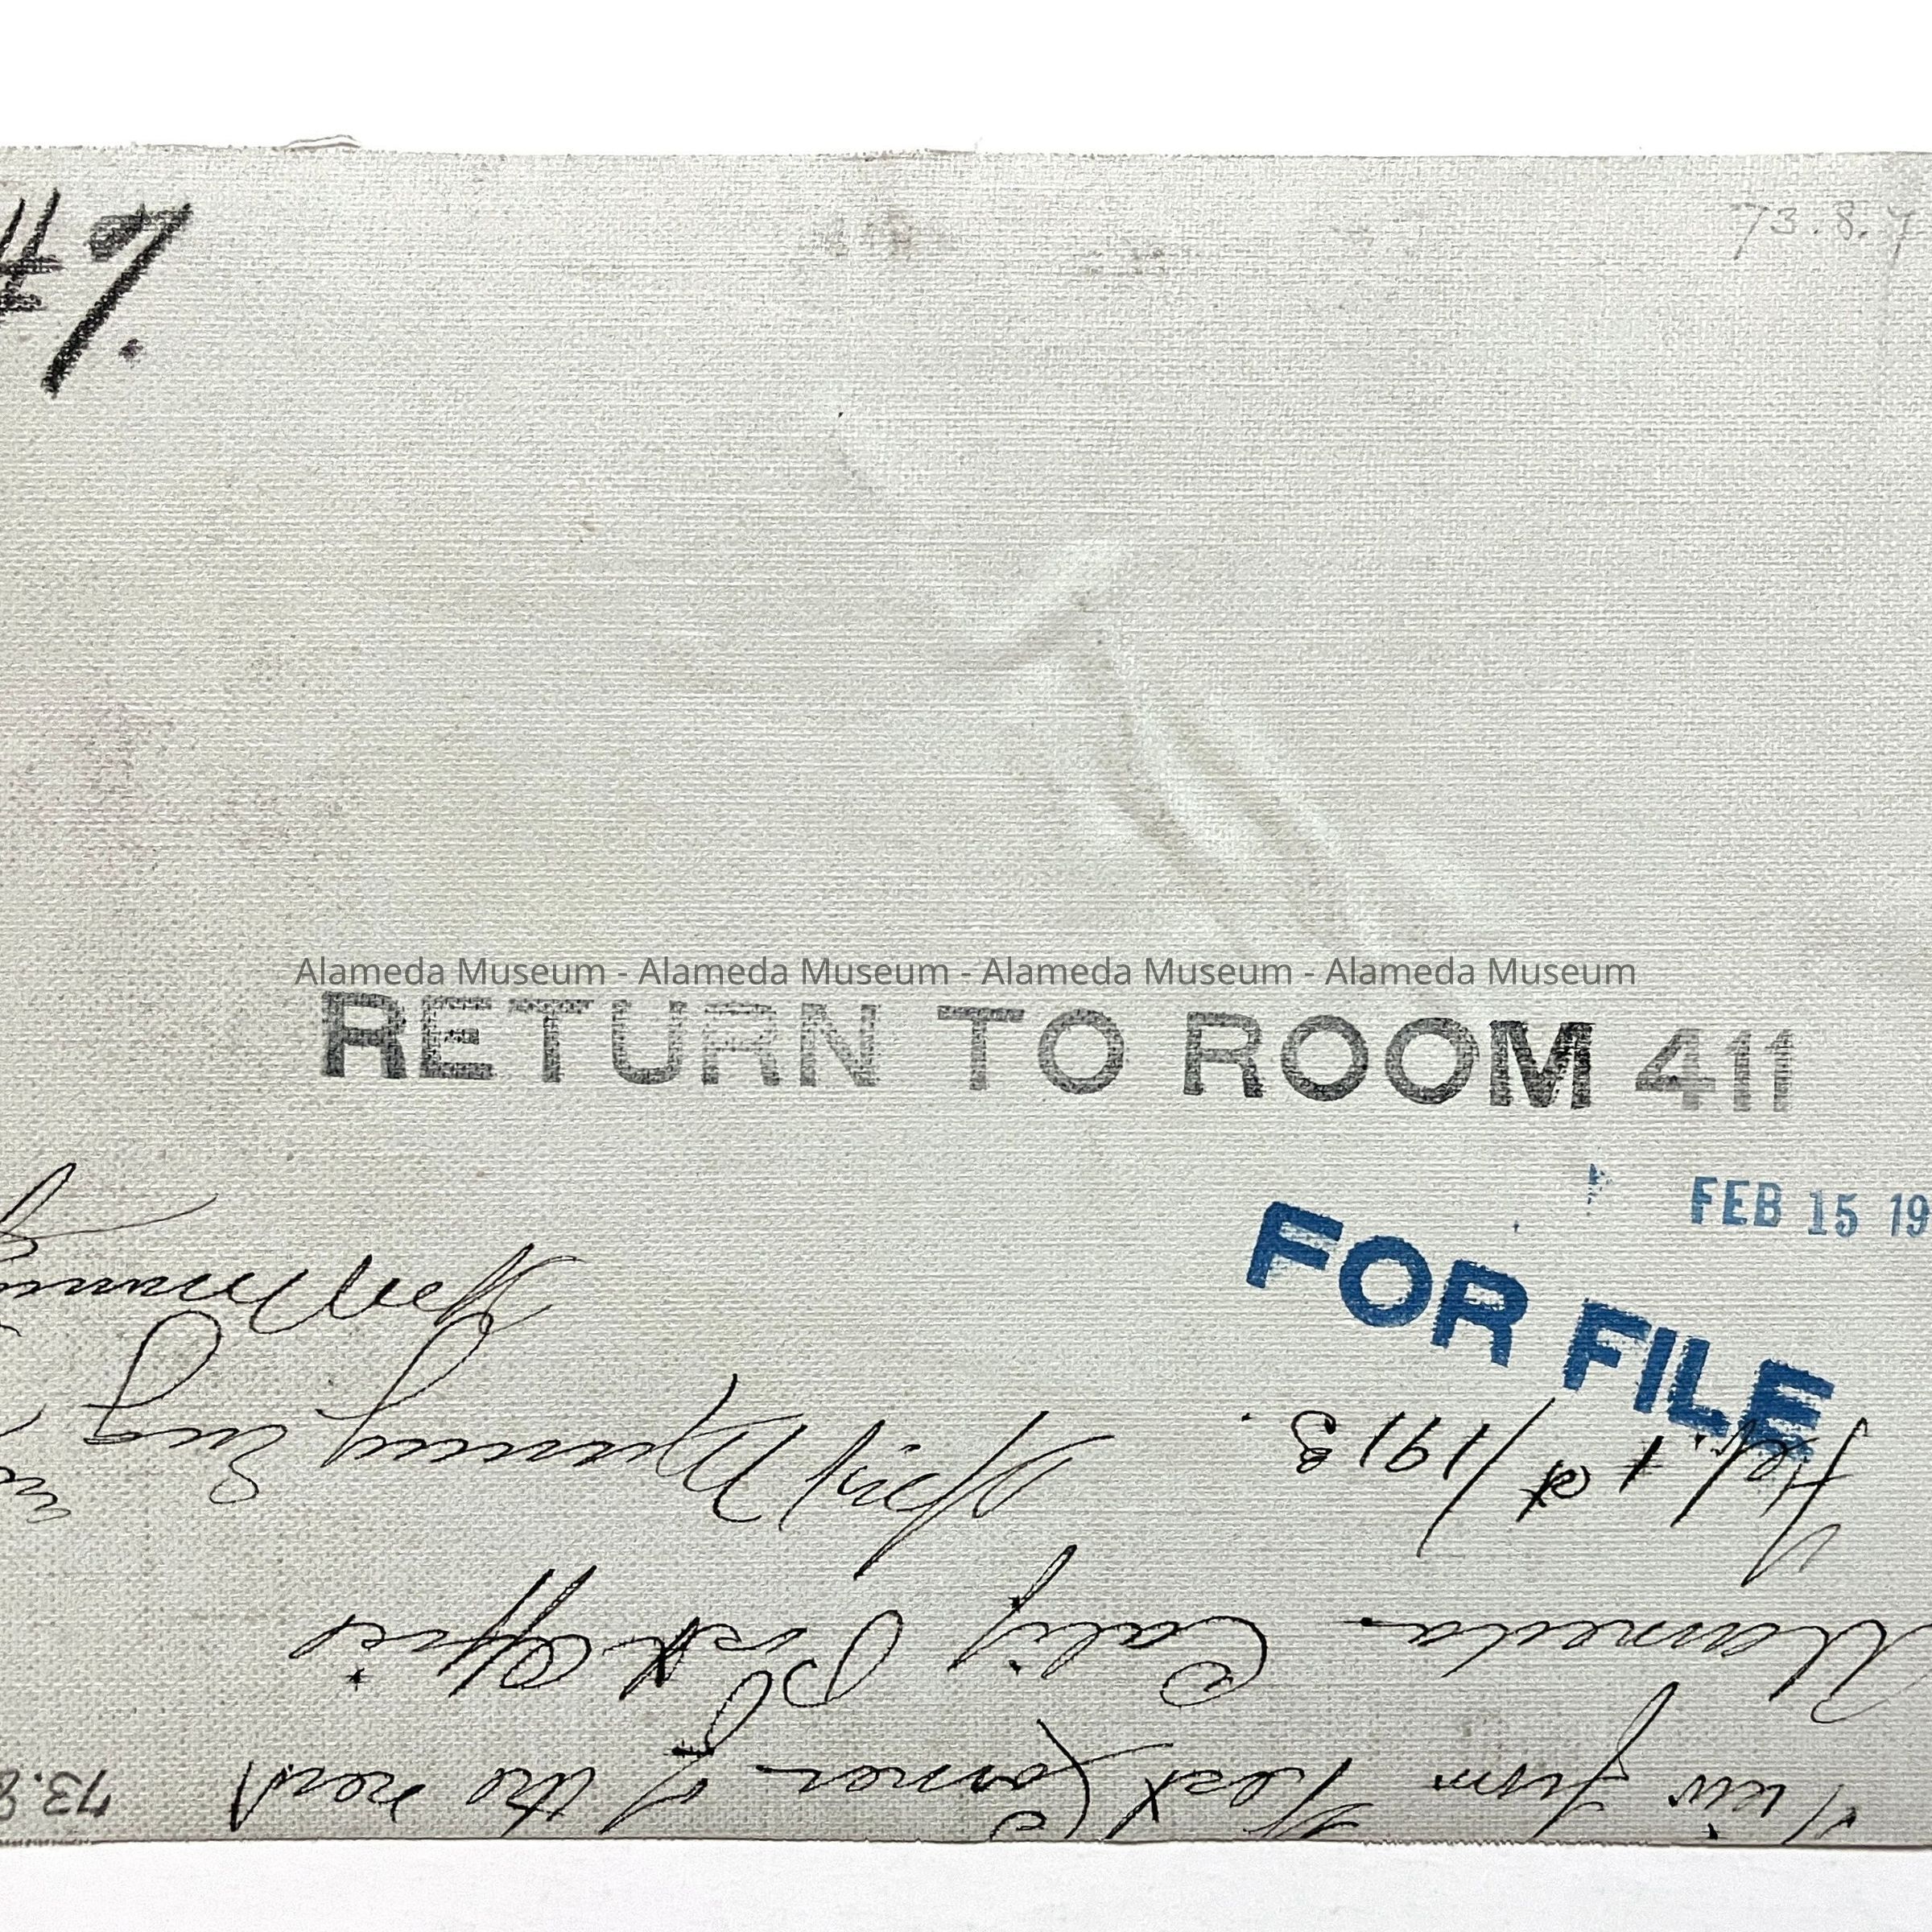 #7.
73.8.7
Alameda Museum - Alameda Museum - Alameda Museum - Alameda Museum
RETURN TO ROOM 411
FEB 15 19
FOR FILE
View from West Corner of the rear
Alameda Calif Post Office
Feb. 1st/1913.
73.8